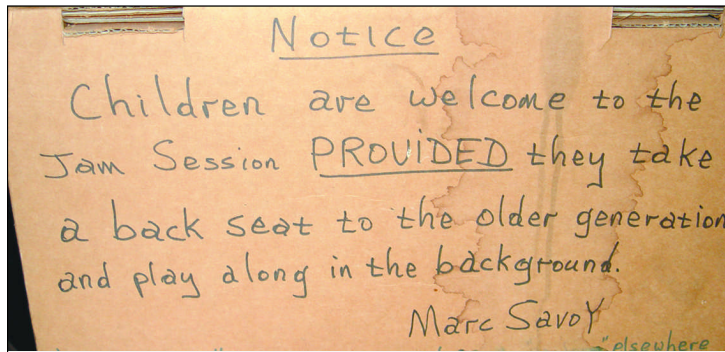 Notice
Children are welcome to the
Jam Session PROViDED they take
a back seat to the older generation
and play along in the background.
Marc Savoy
"elsewhere